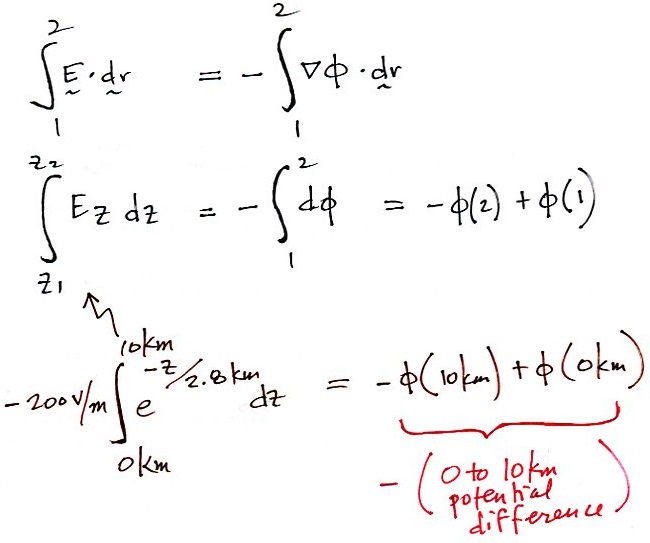 ∫₁² E · dr = - ∫₁² ∇ϕ · dr
∫_{z1}^{z2} Ez dz = - ∫₁² dϕ = -ϕ(2) + ϕ(1)
-200 V/m ∫_{0km}^{10km} e^{-z/2.8km} dz = -ϕ(10km) + ϕ(0km)
- (0 to 10km
potential
difference)